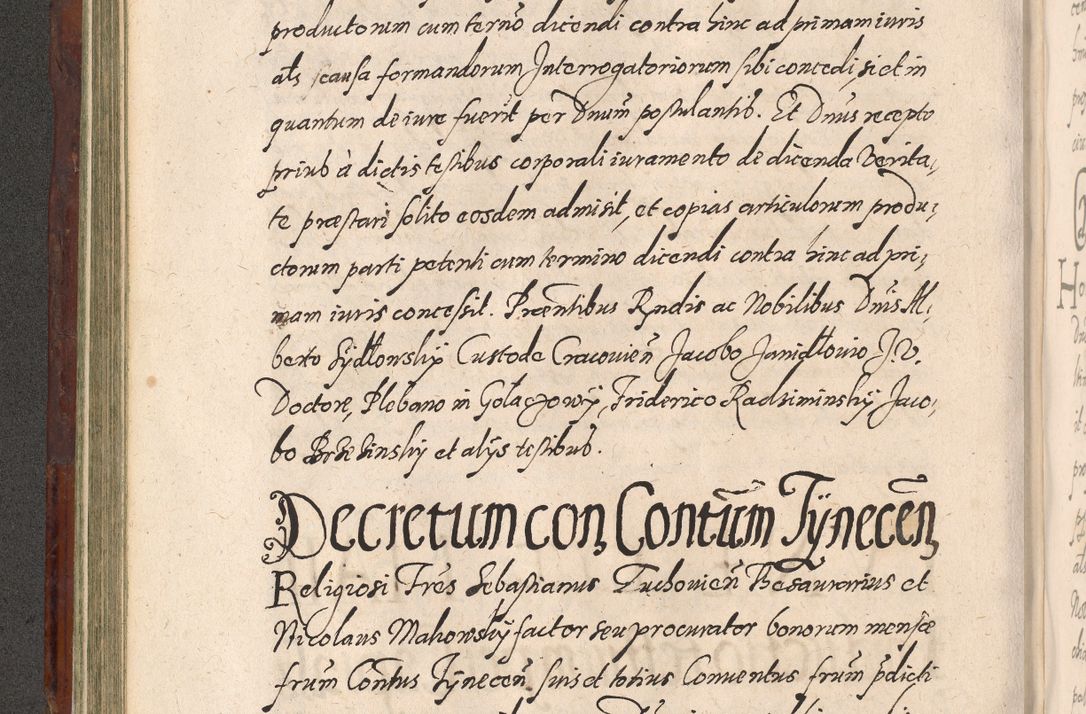 productorum cum termo dicendi contra hinc ad primam iuris
als causa formandorum Interrogatoriorum sibi concedi, si et in
quantum de iure fuerit per Dnum postulantib. Et Dnus recepto
prius à dictis testibus corporali iuramento de dicenda Verita,
te præstari solito eosdem admisit, et copias articulorum produ,
ctorum parti petenti cum termino dicendi contra hinc ad pri,
mam iuris concessit. Præntibus Rndis ac Nobilibus Dnis Al,
berto Sydłowskÿ Custode Cracovien Jacobo Janidłovio J.V.
Doctore, Plebano in Gołaczowÿ, Friderico Radziminskÿ Jaco,
bo Brzezinskÿ et alÿs testibus.
Decretum con, Contum Tÿnecen,
Religiosi Frēs Sebastianus Tuchovien Thesaurarius et
Nicolaus Makowskÿ factor seu procurator bonorum mensæ
frum Contus Tÿnecen suis et totius Conventus frum pdicti